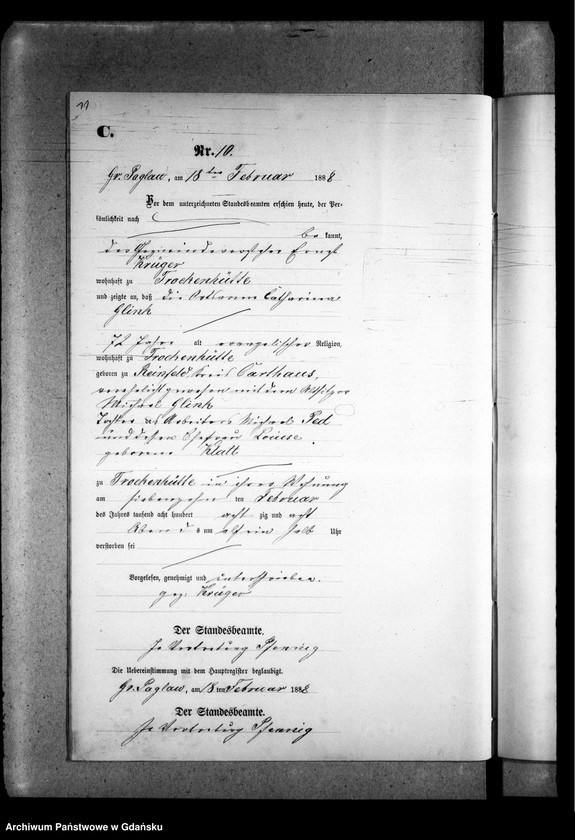 C.
Nr. 10.
Gr. Paglau, am 18 ten Februar 1888
Vor dem unterzeichneten Standesbeamten erschien heute, der Per-
sönlichkeit nach
be kannt,
der Gemeindevorsteher Ernst
Krüger
wohnhaft zu Trockenhütte
und zeigte an, daß die Catharina
Glink
72 Jahre alt evangelischer Religion,
wohnhaft zu Trockenhütte
geboren zu Reinfeld Kreis Carthaus,
verehelicht gewesen mit dem Altsitzer
Michael Glink
Tochter des Arbeiters Michael Ped
und dessen Ehefrau Louise
geborene Klatt
zu Trockenhütte in ihrer Wohnung
am siebenzehn ten Februar
des Jahres tausend acht hundert acht zig und acht
Abends um elf ein halb Uhr
verstorben sei
Vorgelesen, genehmigt und unterschrieben.
gez. Krüger
Der Standesbeamte.
In Vertretung Pfennig
Die Uebereinstimmung mit dem Hauptregister beglaubigt.
Gr. Paglau, am 18 ten Februar 1888
Der Standesbeamte.
In Vertretung Pfennig
Archiwum Państwowe w Gdańsku